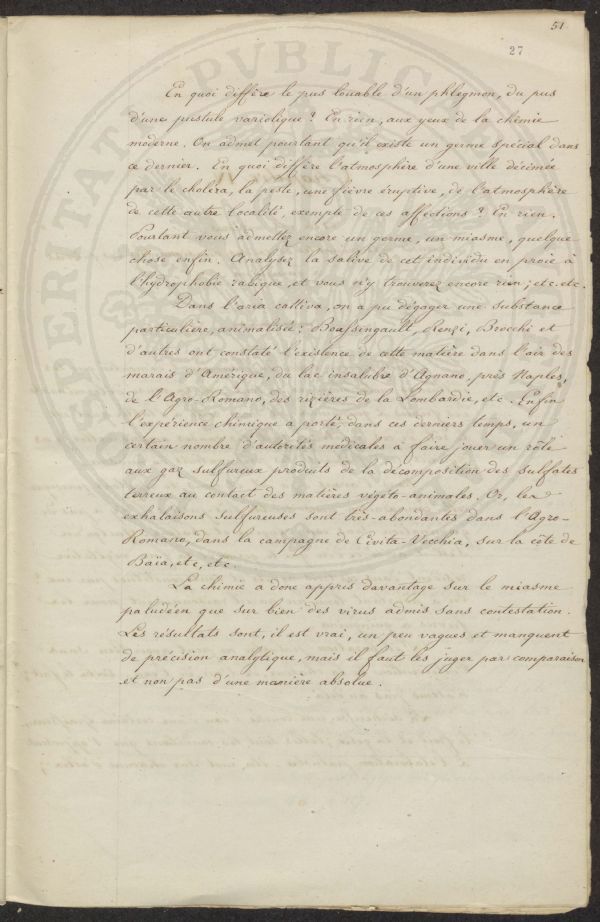 51
27
En quoi diffère le pus louable d'un phlegmon, du pus
d'une pustule variolique? En rien, aux yeux de la chimie
moderne. On admet pourtant qu'il existe un germe spécial dans
ce dernier. En quoi diffère l'atmosphère d'une ville décimée
par le choléra, la peste, une fièvre éruptive, de l'atmosphère
de cette autre localité, exempte de ces affections? En rien.
Pourtant vous admettez encore un germe, un miasme, quelque
chose enfin. Analysez la salive de cet individu en proie à
l'hydrophobie rabique, et vous n'y trouverez encore rien; etc. etc.
Dans l'aria cattiva, on a pu dégager une substance
particulière, animalisée: Boussingault, Renzi, Brocchi et
d'autres ont constaté l'existence de cette matière dans l'air des
marais d'Amérique, du lac insalubre d'Agnano, près Naples,
de l'Agro-Romano, des rizières de la Lombardie, etc. Enfin
l'expérience chimique a porté, dans ces derniers temps, un
certain nombre d'autorités médicales à faire jouer un rôle
aux gaz sulfureux produits de la décomposition des sulfates
terreux au contact des matières végéto-animales. Or, les
exhalaisons sulfureuses sont très-abondantes dans l'Agro-
Romano, dans la campagne de Civita-Vecchia, sur la côte de
Baïa, etc, etc
La chimie a donc appris davantage sur le miasme
paludéen que sur bien des virus admis sans contestation.
Les résultats sont, il est vrai, un peu vagues et manquent
de précision analytique, mais il faut les juger par comparaison
et non pas d'une manière absolue.
PROSPERITATI PUBLICAE